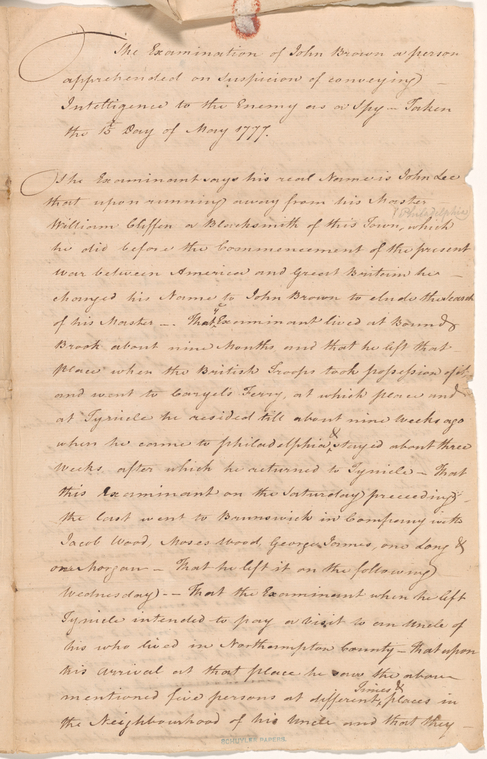 The Examination of John Brown a person
apprehended on Suspicion of conveying
Intelligence to the Enemy as a Spy — Taken
the 15 Day of May 1777.
The Examinant says his real Name is John Lee
that upon running away from his Master
Philadelphia
William Cliffen a Blacksmith of this Town, which
he did before the Commencement of the present
war between America and Great Britain he
changed his Name to John Brown to elude the Search
of his Master — That ye Examinant lived at Bound
Brook about nine Months and that he left that
place when the British Troops took possession of it,
and went to Caryel's Ferry, at which place and
at Tynicle he resided till about nine Weeks ago
when he came to philadelphia & stayed about three
Weeks, after which he returned to Tynicle — That
this Examinant on the Saturday preceeding
the last went to Brunswick in Company with
Jacob Wood, Moses Wood, George James, one Long &
one Morgan — That he left it on the following
Wednesday) — That the Examinant when he left
Tynicle intended to pay a visit to an Uncle of
his who lived in Northampton County — that upon
his arrival at that place he saw the above
mentioned five persons at different Times & places in
the Neighbourhood of his Uncle, and that they
SCHUYLER PAPERS.